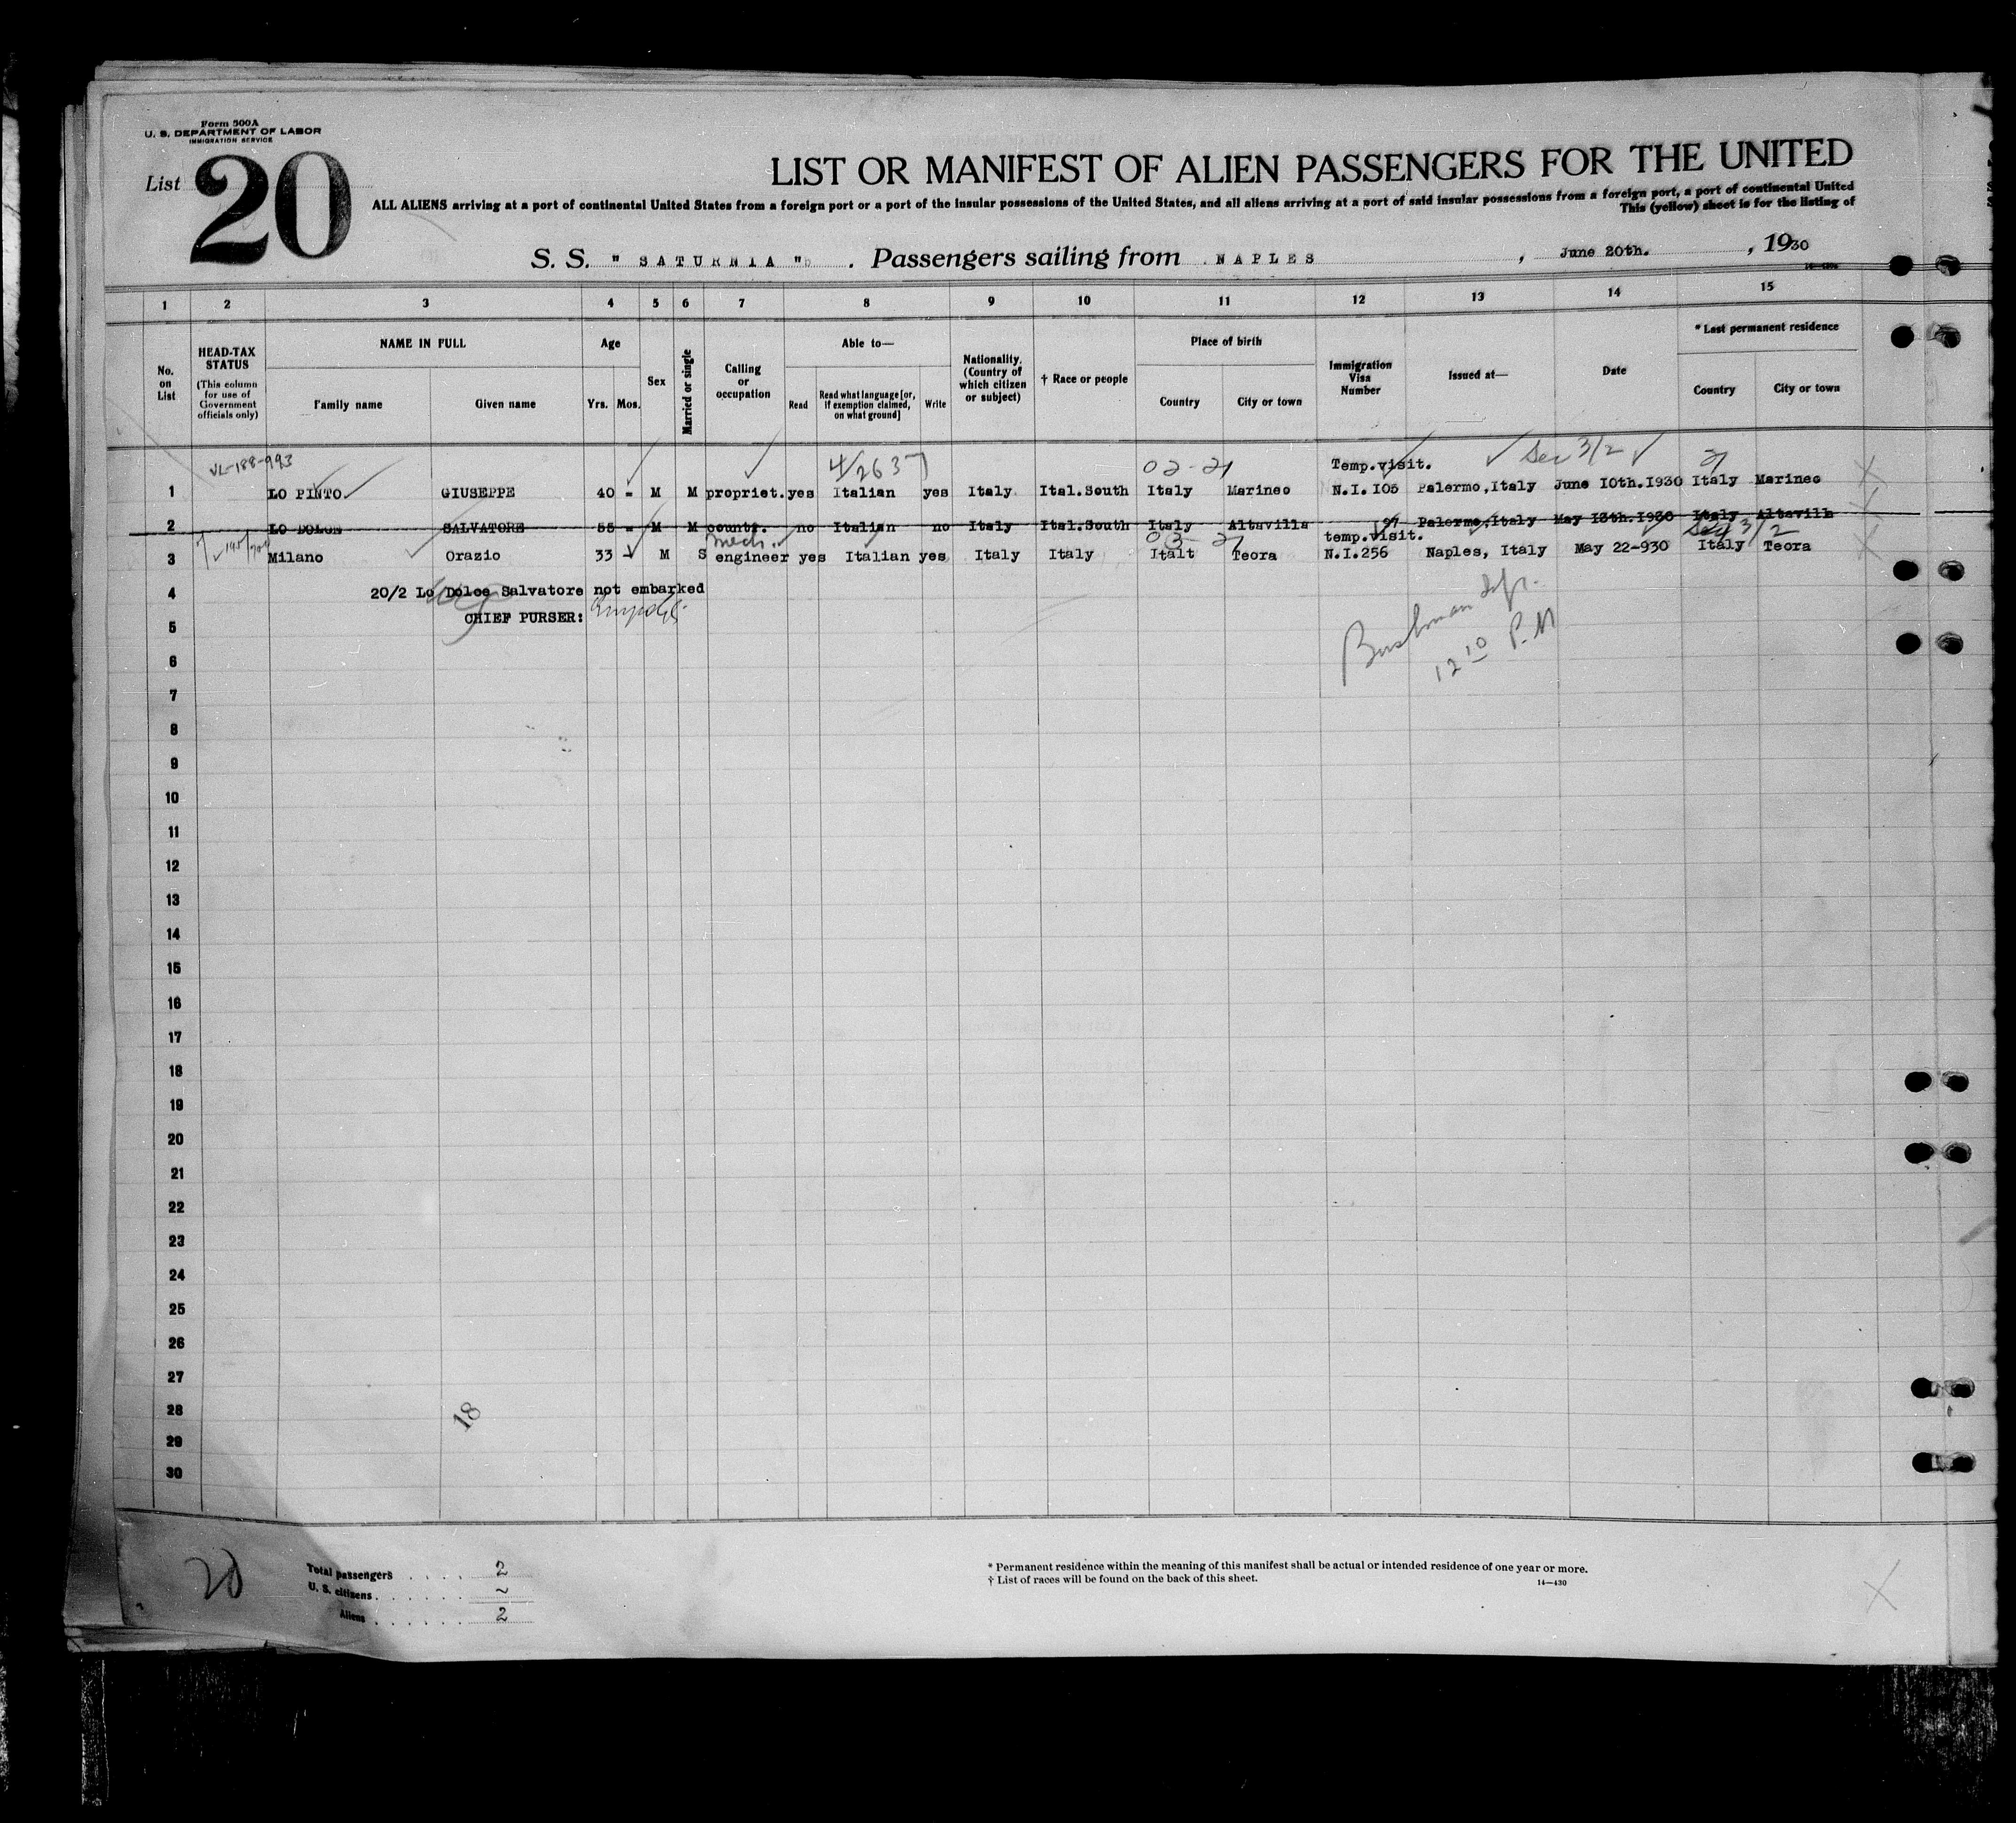 Form 500A
U. S. DEPARTMENT OF LABOR
IMMIGRATION SERVICE
List 20
LIST OR MANIFEST OF ALIEN PASSENGERS FOR THE UNITED
ALL ALIENS arriving at a port of continental United States from a foreign port or a port of the insular possessions of the United States, and all aliens arriving at a port of said insular possessions from a foreign port, a port of continental United
This (yellow) sheet is for the listing of
S. S. " SATURNIA " . Passengers sailing from NAPLES , June 20th. , 1930
1 2 3 4 5 6 7 8 9 10 11 12 13 14 15
No. on List
HEAD-TAX STATUS
(This column for use of Government officials only)
NAME IN FULL
Family name
Given name
Age
Yrs. Mos.
Sex
Married or single
Calling or occupation
Able to—
Read
Read what language [or, if exemption claimed, on what ground]
Write
Nationality. (Country of which citizen or subject)
† Race or people
Place of birth
Country
City or town
Immigration Visa Number
Issued at—
Date
* Last permanent residence
Country
City or town
VL-188-993 4/2637 02-21 Temp.visit. Sec 3/2
1 LO PINTO GIUSEPPE 40 - M M propriet. yes Italian yes Italy Ital.South Italy Marineo N.I.105 Palermo,Italy June 10th.1930 Italy Marineo
2 LO DOLCE SALVATORE 55 - M M countr. no Italian no Italy Ital.South Italy Altavilla 97 Palermo,Italy May 13th.1930 Italy Altavilla
mech. 03- temp.visit. Sec 3/2
3 Milano Orazio 33 M S engineer yes Italian yes Italy Italy Italt Teora N.I.256 Naples, Italy May 22-930 Italy Teora
4 20/2 Lo Dolce Salvatore not embarked
CHIEF PURSER:
5
Bushman
12 10 P.M
6
7
8
9
10
11
12
13
14
15
16
17
18
19
20
21
22
23
24
25
26
27
28
29
30
18
20
Total passengers . . . . 2
U. S. citizens . . . . . . ~
Aliens . . . . . . . 2
* Permanent residence within the meaning of this manifest shall be actual or intended residence of one year or more.
† List of races will be found on the back of this sheet.
14—430